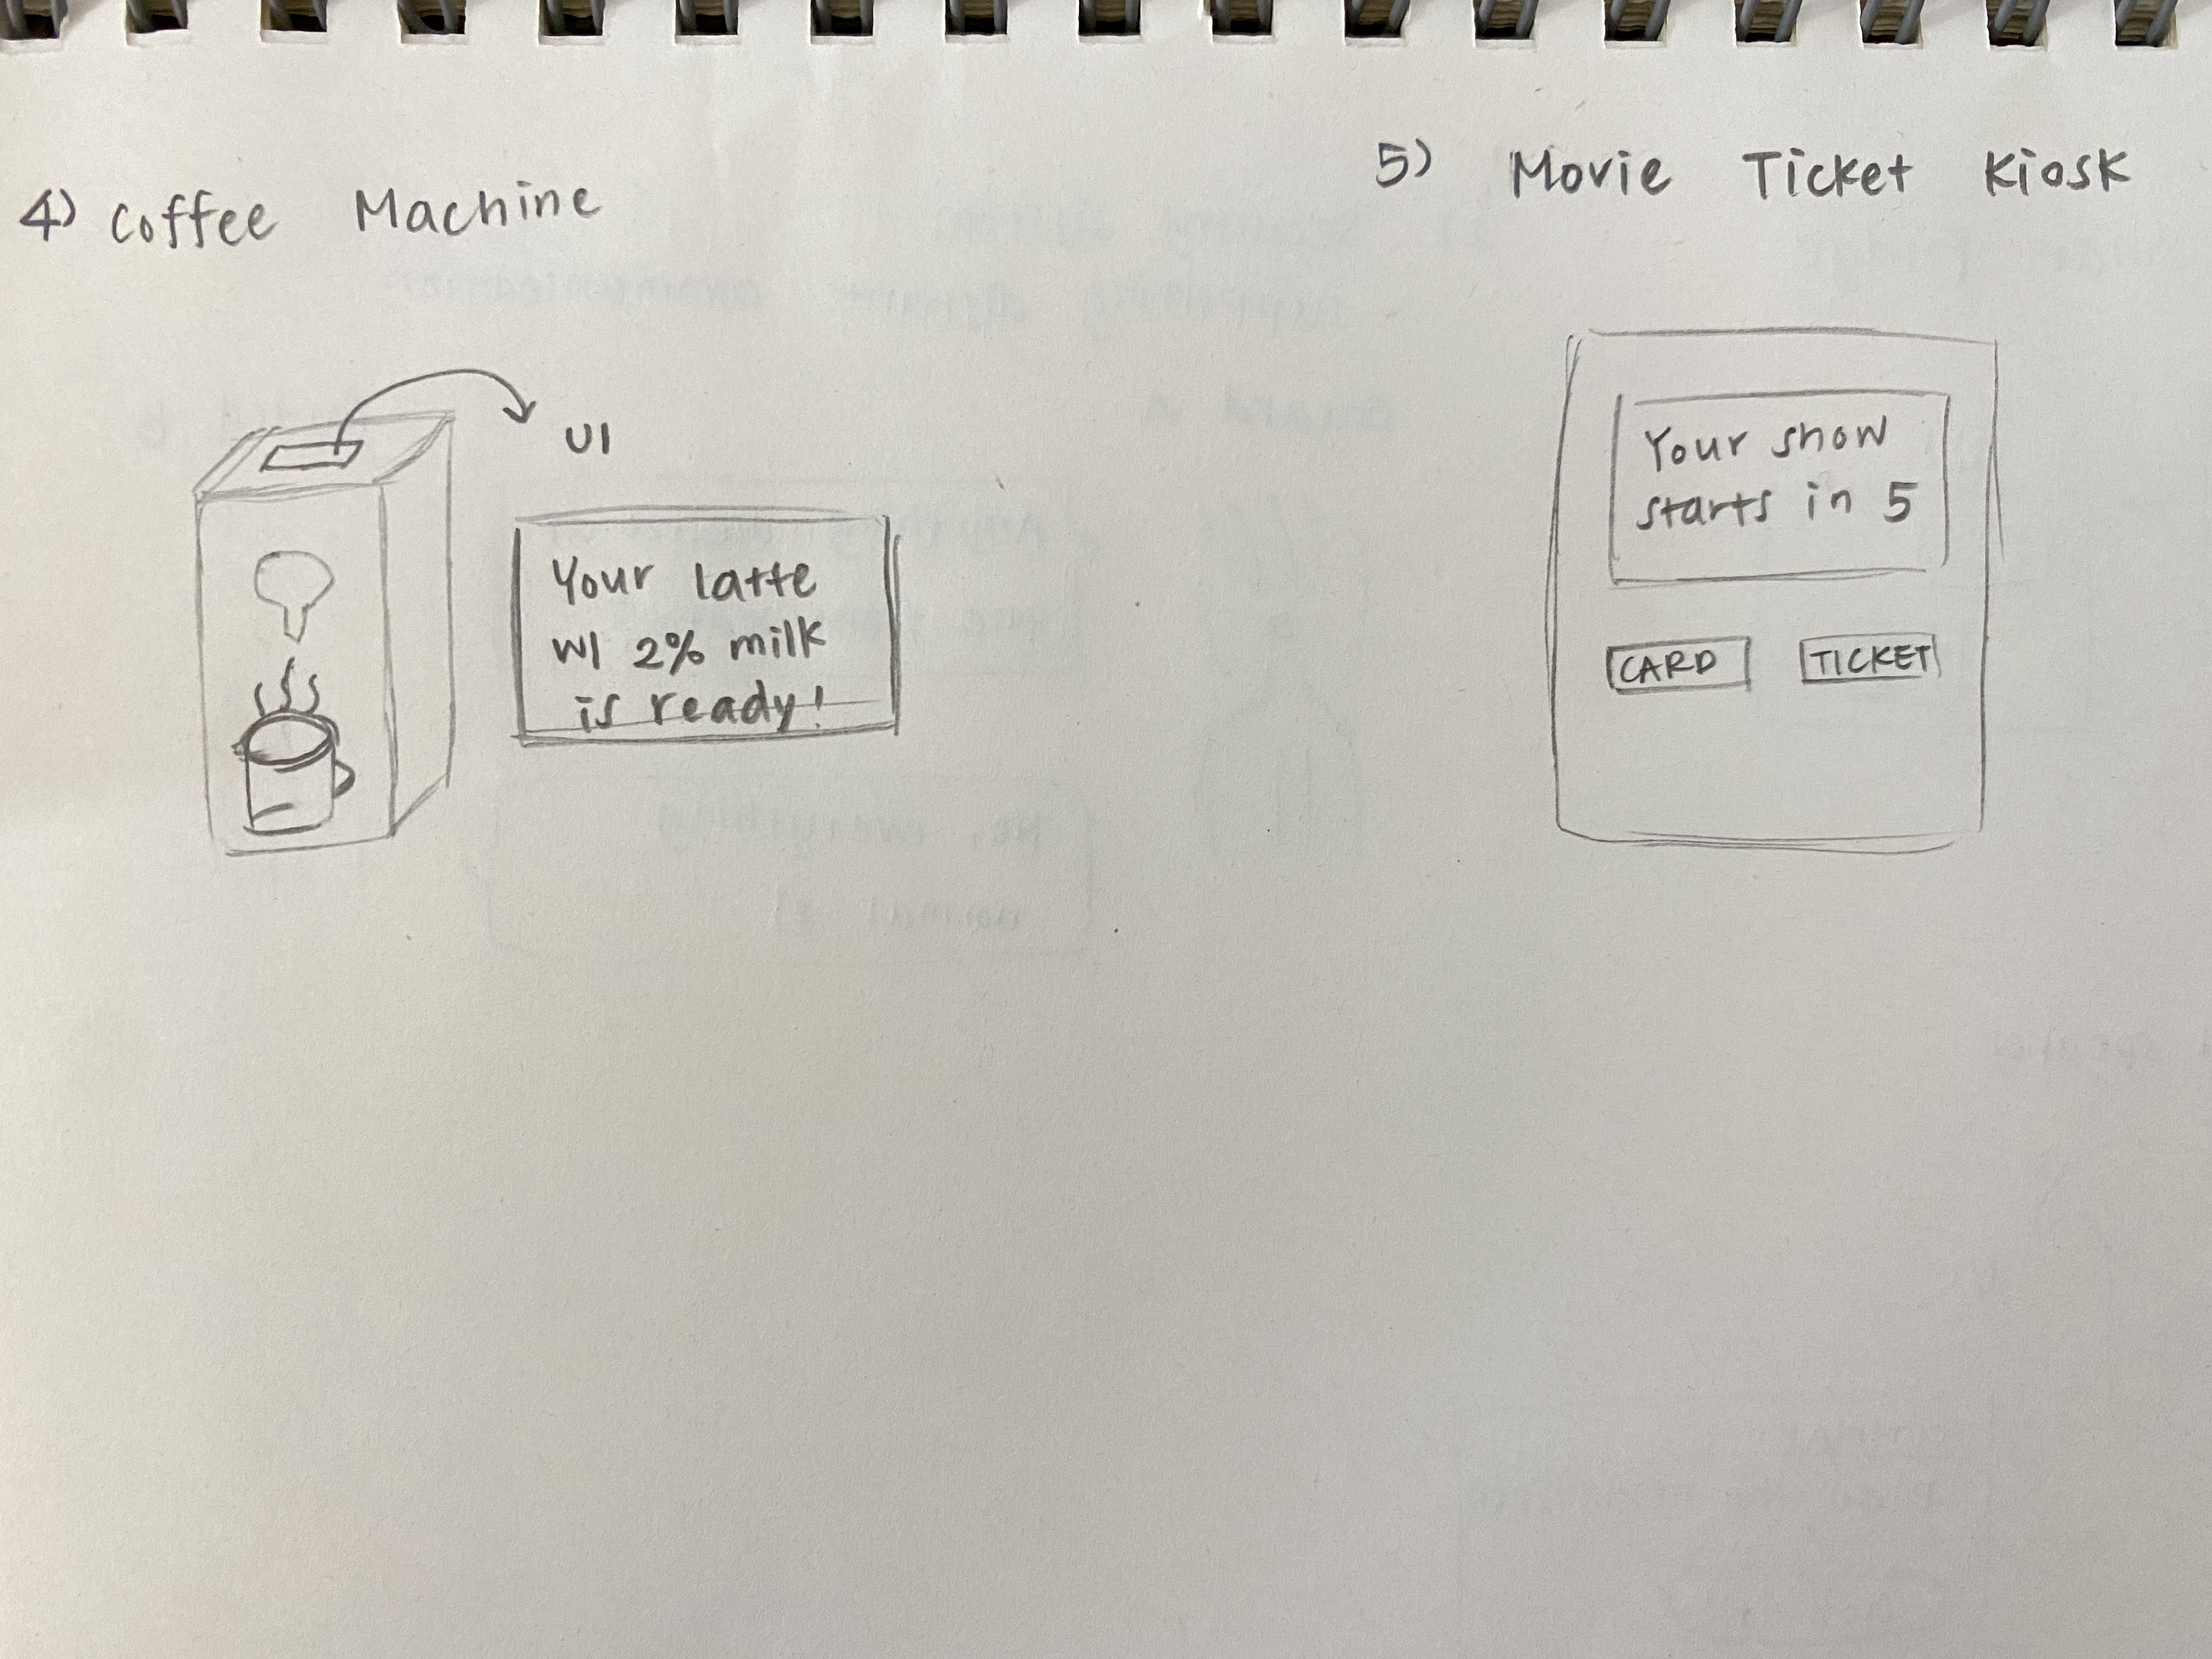 4) Coffee Machine
UI
Your latte
w/ 2% milk
is ready!
5) Movie Ticket Kiosk
Your show
starts in 5
CARD
TICKET